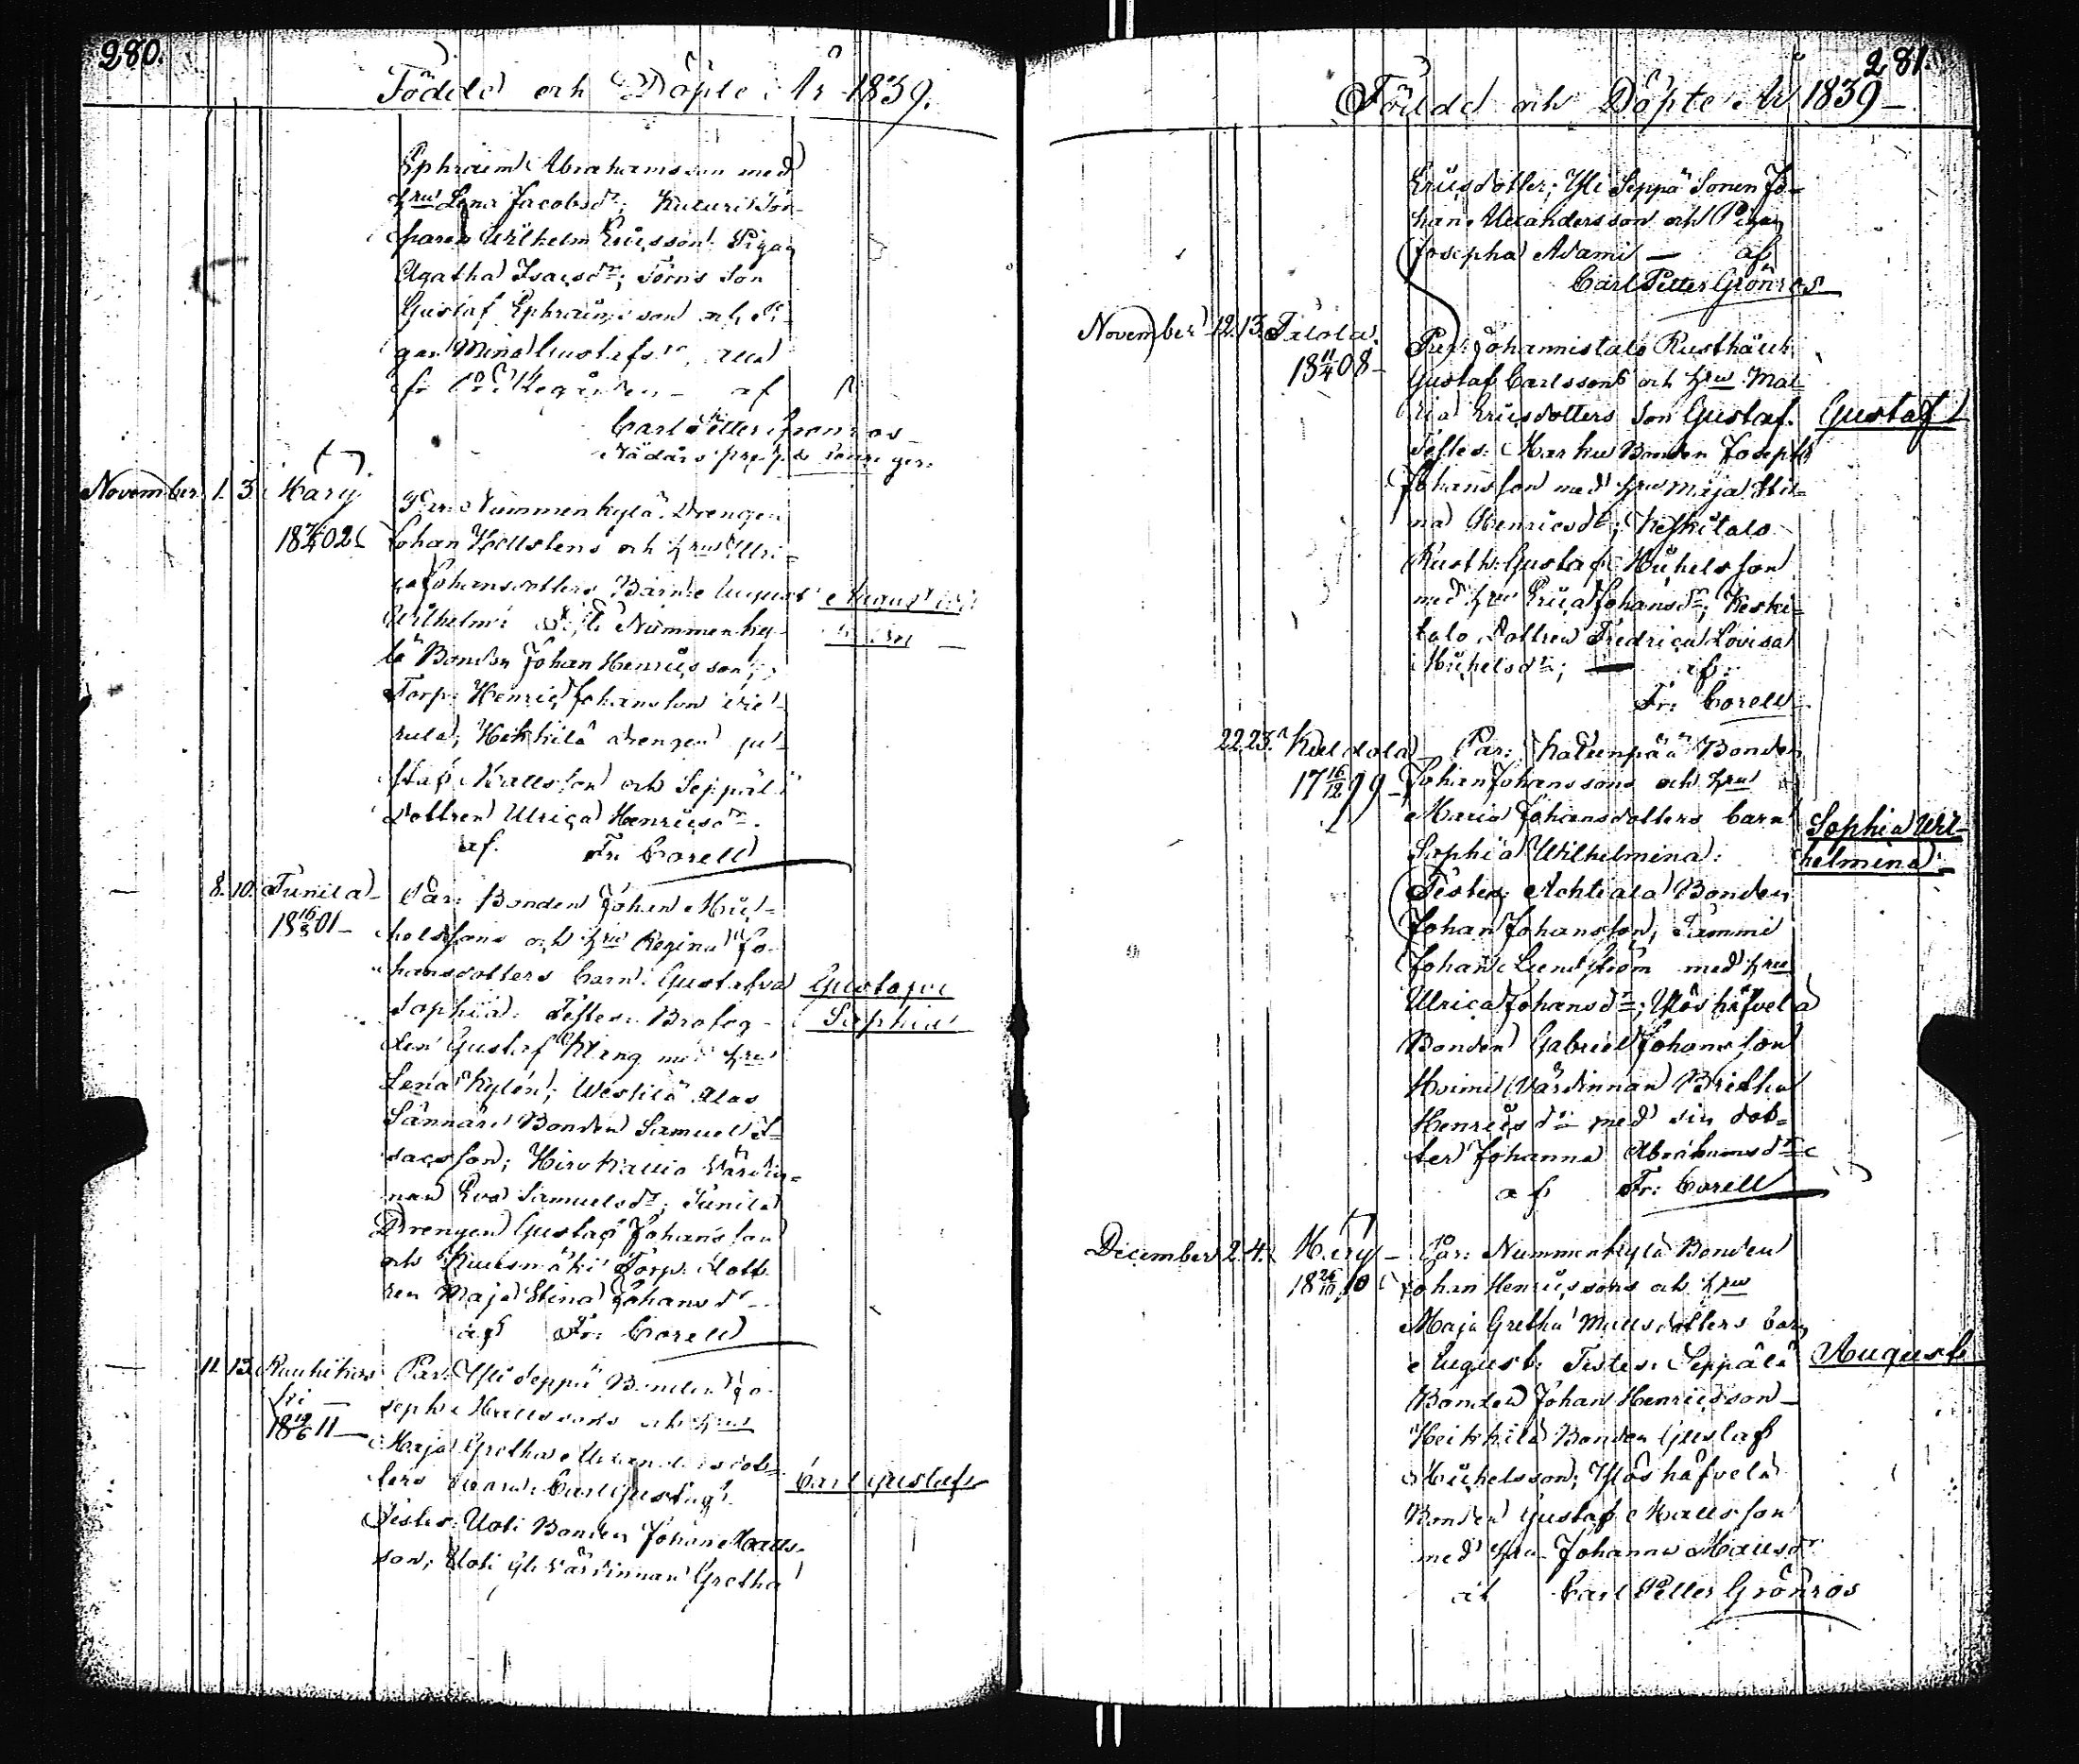 280.
Födde och Döpte År 1839.
Ephraim Abrahamsson med
hru Lena Jacobsdr; Kuturi Tor-
paren Wilhelm Ericsson Pigan
Agatha Isacsdr; Torns Son
Gustaf Ephraimsson och Pi-
gan Mina Gustafsdr, alla
af
Carl Petter Grönroos
Nådårs pred.
November 1. 3. Karij
18 02 Par: Nummenkylä Drengen
Johan Hellstens och hru Ulri-
ca Johansdotters Barn: August August Wil-
Wilhelm: Nummenky-
lä Bonden Johan Henricsson;
Torp: Henric Johansson
rula; Heikkilä drengen Gu-
staf Mattsson och Seppälä
dottren Ulrica Henricsdr.
af. Fr: Corell
8. 10. Tunila Par: Bonden Johan Mic-
18 16/3 01 helssons och hru Regina Jo-
hansdotters barn: Gustafva Gustafva
Sophia: Testes: Brofog- Sophia
den Gustaf Kling med hru
Lena Kylén; Westilä Alas
Sännäri Bonden Samuel I-
sacsson; Hirvikallio Värdin-
nan Eva Samuelsdr; Tunila
Drengen Gustaf Johansson
och Kuusmäki Torp: dott-
ren Maja Stina Johansdr
af Fr: Corell
11. 13. Rauhikos Par: Yli Seppä Bonden Jo-
ki
18 19/6 11 seph Mattssons och hru
Maja Gretha Alexandersdot-
ters barn: Carl Gustaf. Carl Gustaf
Testes: Uoti Bonden Johan Matts-
son; Uoti Yli Värdinnan Gretha
281.
Födde och Döpte År 1839
Ericsdotter; Yli Seppä Sonen Jo-
han Alexandersson och Pigan
Josepha Adami — af
Carl Petter Grönroos
November 12. 13. Talola.
18 11/4 08 Par: Johannistalo Rusthåll:
Gustaf Carlssons och hru Mat-
ria Ericsdotters Son Gustaf. Gustaf
Testes: Marku Bonden Joseph
Johansson med hru Maja Sti-
na Henricsdr; Keskitalo
Rusth: Gustaf Michelsson
med hru Erica Johansdr; Keski-
talo Dottren Fredrica Lovisa
Michelsdr; — af:
Fr: Corell
22. 23. Kuldola Par: Katunpää Bonden
17 16/12 99 Johan Johanssons och hru
Maria Johansdotters barn Sophia Wil-
Sophia Wilhelmina: helmina
Testes: Achtiala Bonden
Johan Johansson, Tammi
Johan Lundström med hru
Ulrica Johansdr; Ylöshäfvelä
Bonden Gabriel Johansson
Hoimi Värdinnan Britha
Henricsdr med sin dot-
ter Johanna Abrahamsdr
af Fr: Corell
December 2. 4. Karij Par: Nummenkylä Bonden
18 26/10 10 Johan Henricssons och hru
Maja Gretha Mattsdotters barn
August: Testes: Seppälä August
Bonden Johan Henricsson
Heikkilä Bonden Gustaf
Michelsson; Ylöshäfvelä
Bonden Gustaf Mattsson
med hru Johanna Mattsdr
af Carl Petter Grönroos